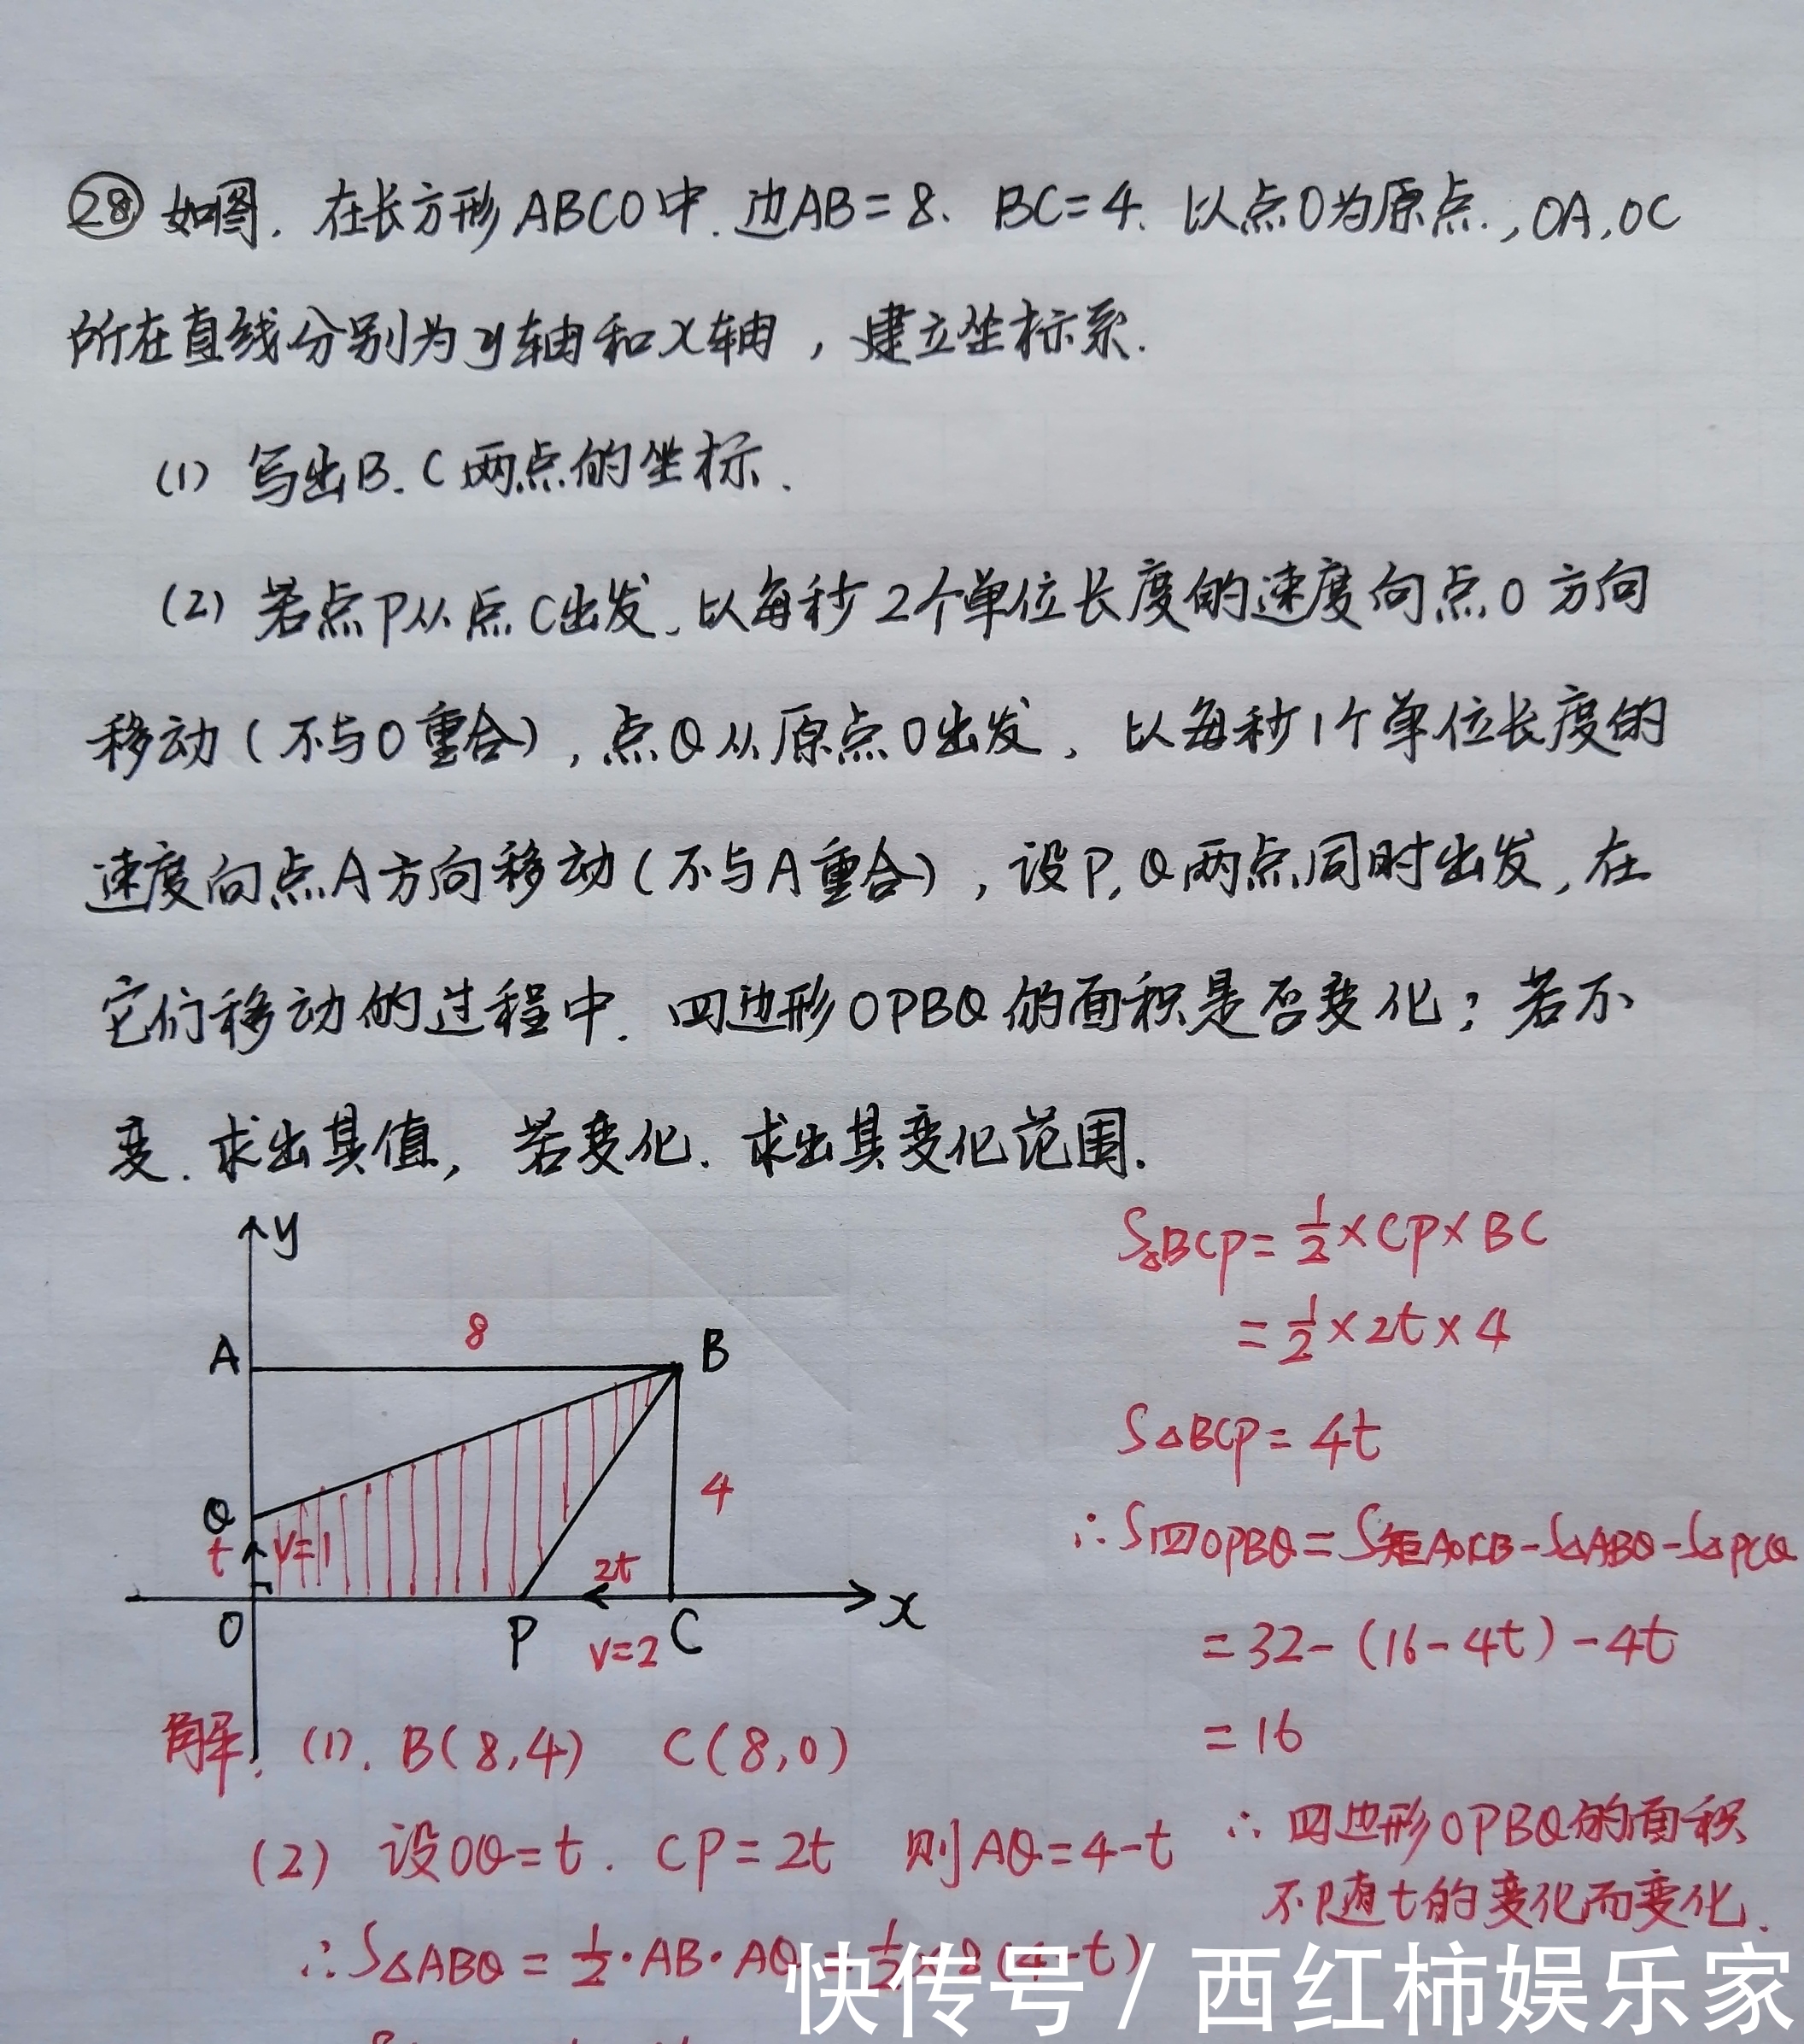 ㉘如图，在长方形ABCO中.边AB=8、BC=4.以点O为原点.,OA,OC
所在直线分别为y轴和x轴，建立坐标系.
(1) 写出B.C两点的坐标.
(2) 若点P从点C出发,以每秒2个单位长度的速度向点O方向
移动(不与O重合),点Q从原点O出发，以每秒1个单位长度的
速度向点A方向移动(不与A重合),设P,Q两点同时出发,在
它们移动的过程中.四边形OPBQ的面积是否变化;若不
变.求出其值，若变化.求出其变化范围.
y
A
8
B
Q
t
v=1
4
2t
O
P
v=2
C
x
解. (1). B(8,4) C(8,0)
(2) 设OQ=t. CP=2t 则AQ=4-t
∴S△ABQ=½·AB·AQ=½×8(4-t)
S△BCP=½×CP×BC
=½×2t×4
S△BCP=4t
∴S四OPBQ=S矩AOCB-S△ABQ-S△PCQ
=32-(16-4t)-4t
=16
∴四边形OPBQ的面积
不随t的变化而变化.
快传号/西红柿娱乐家